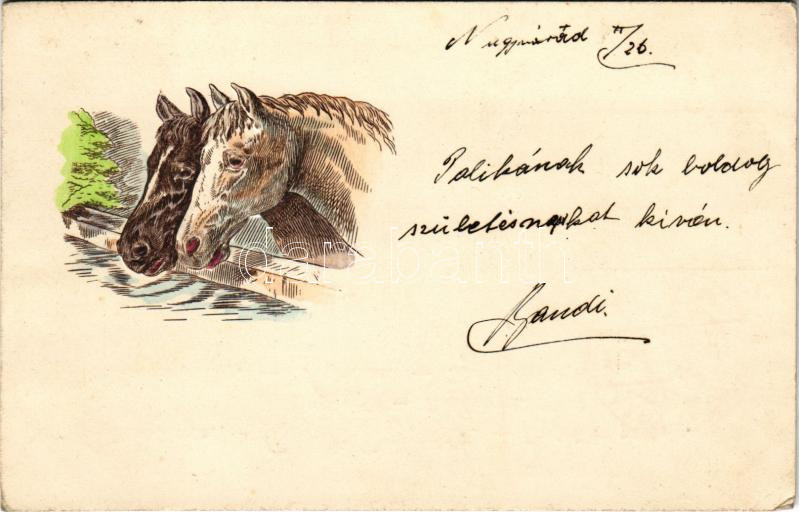 Nagyvárad II/26.
Palikának sok boldog
születésnapkat kíván.
Bandi.
darabanth